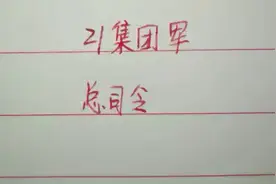 21集团军
总司令